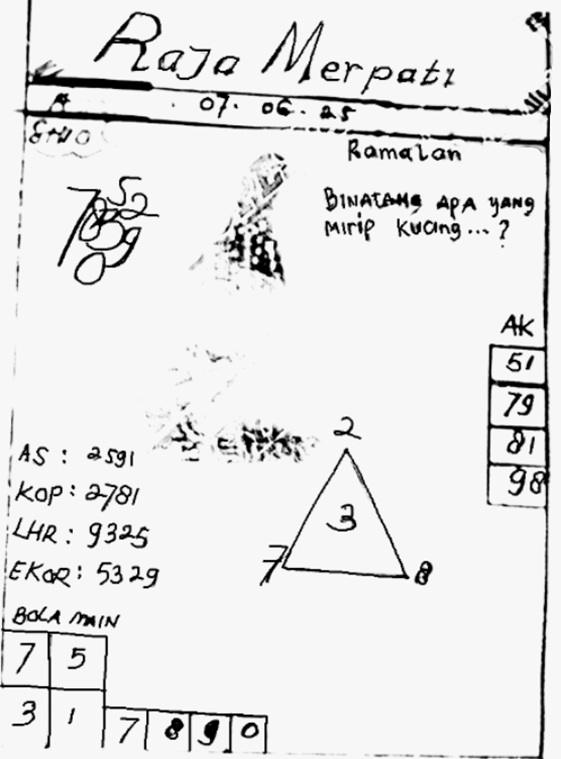 Raja Merpati
A . 07. 06. 25
Ramalan
BINATANG APA YANG
MIRIP KUCING...?
752
AK
51
79
81
98
AS : 2591
KOP : 2781
LHR : 9325
EKOR : 5329
2
3
7 8
BOLA MAIN
7 5
3 1
7 8 9 0